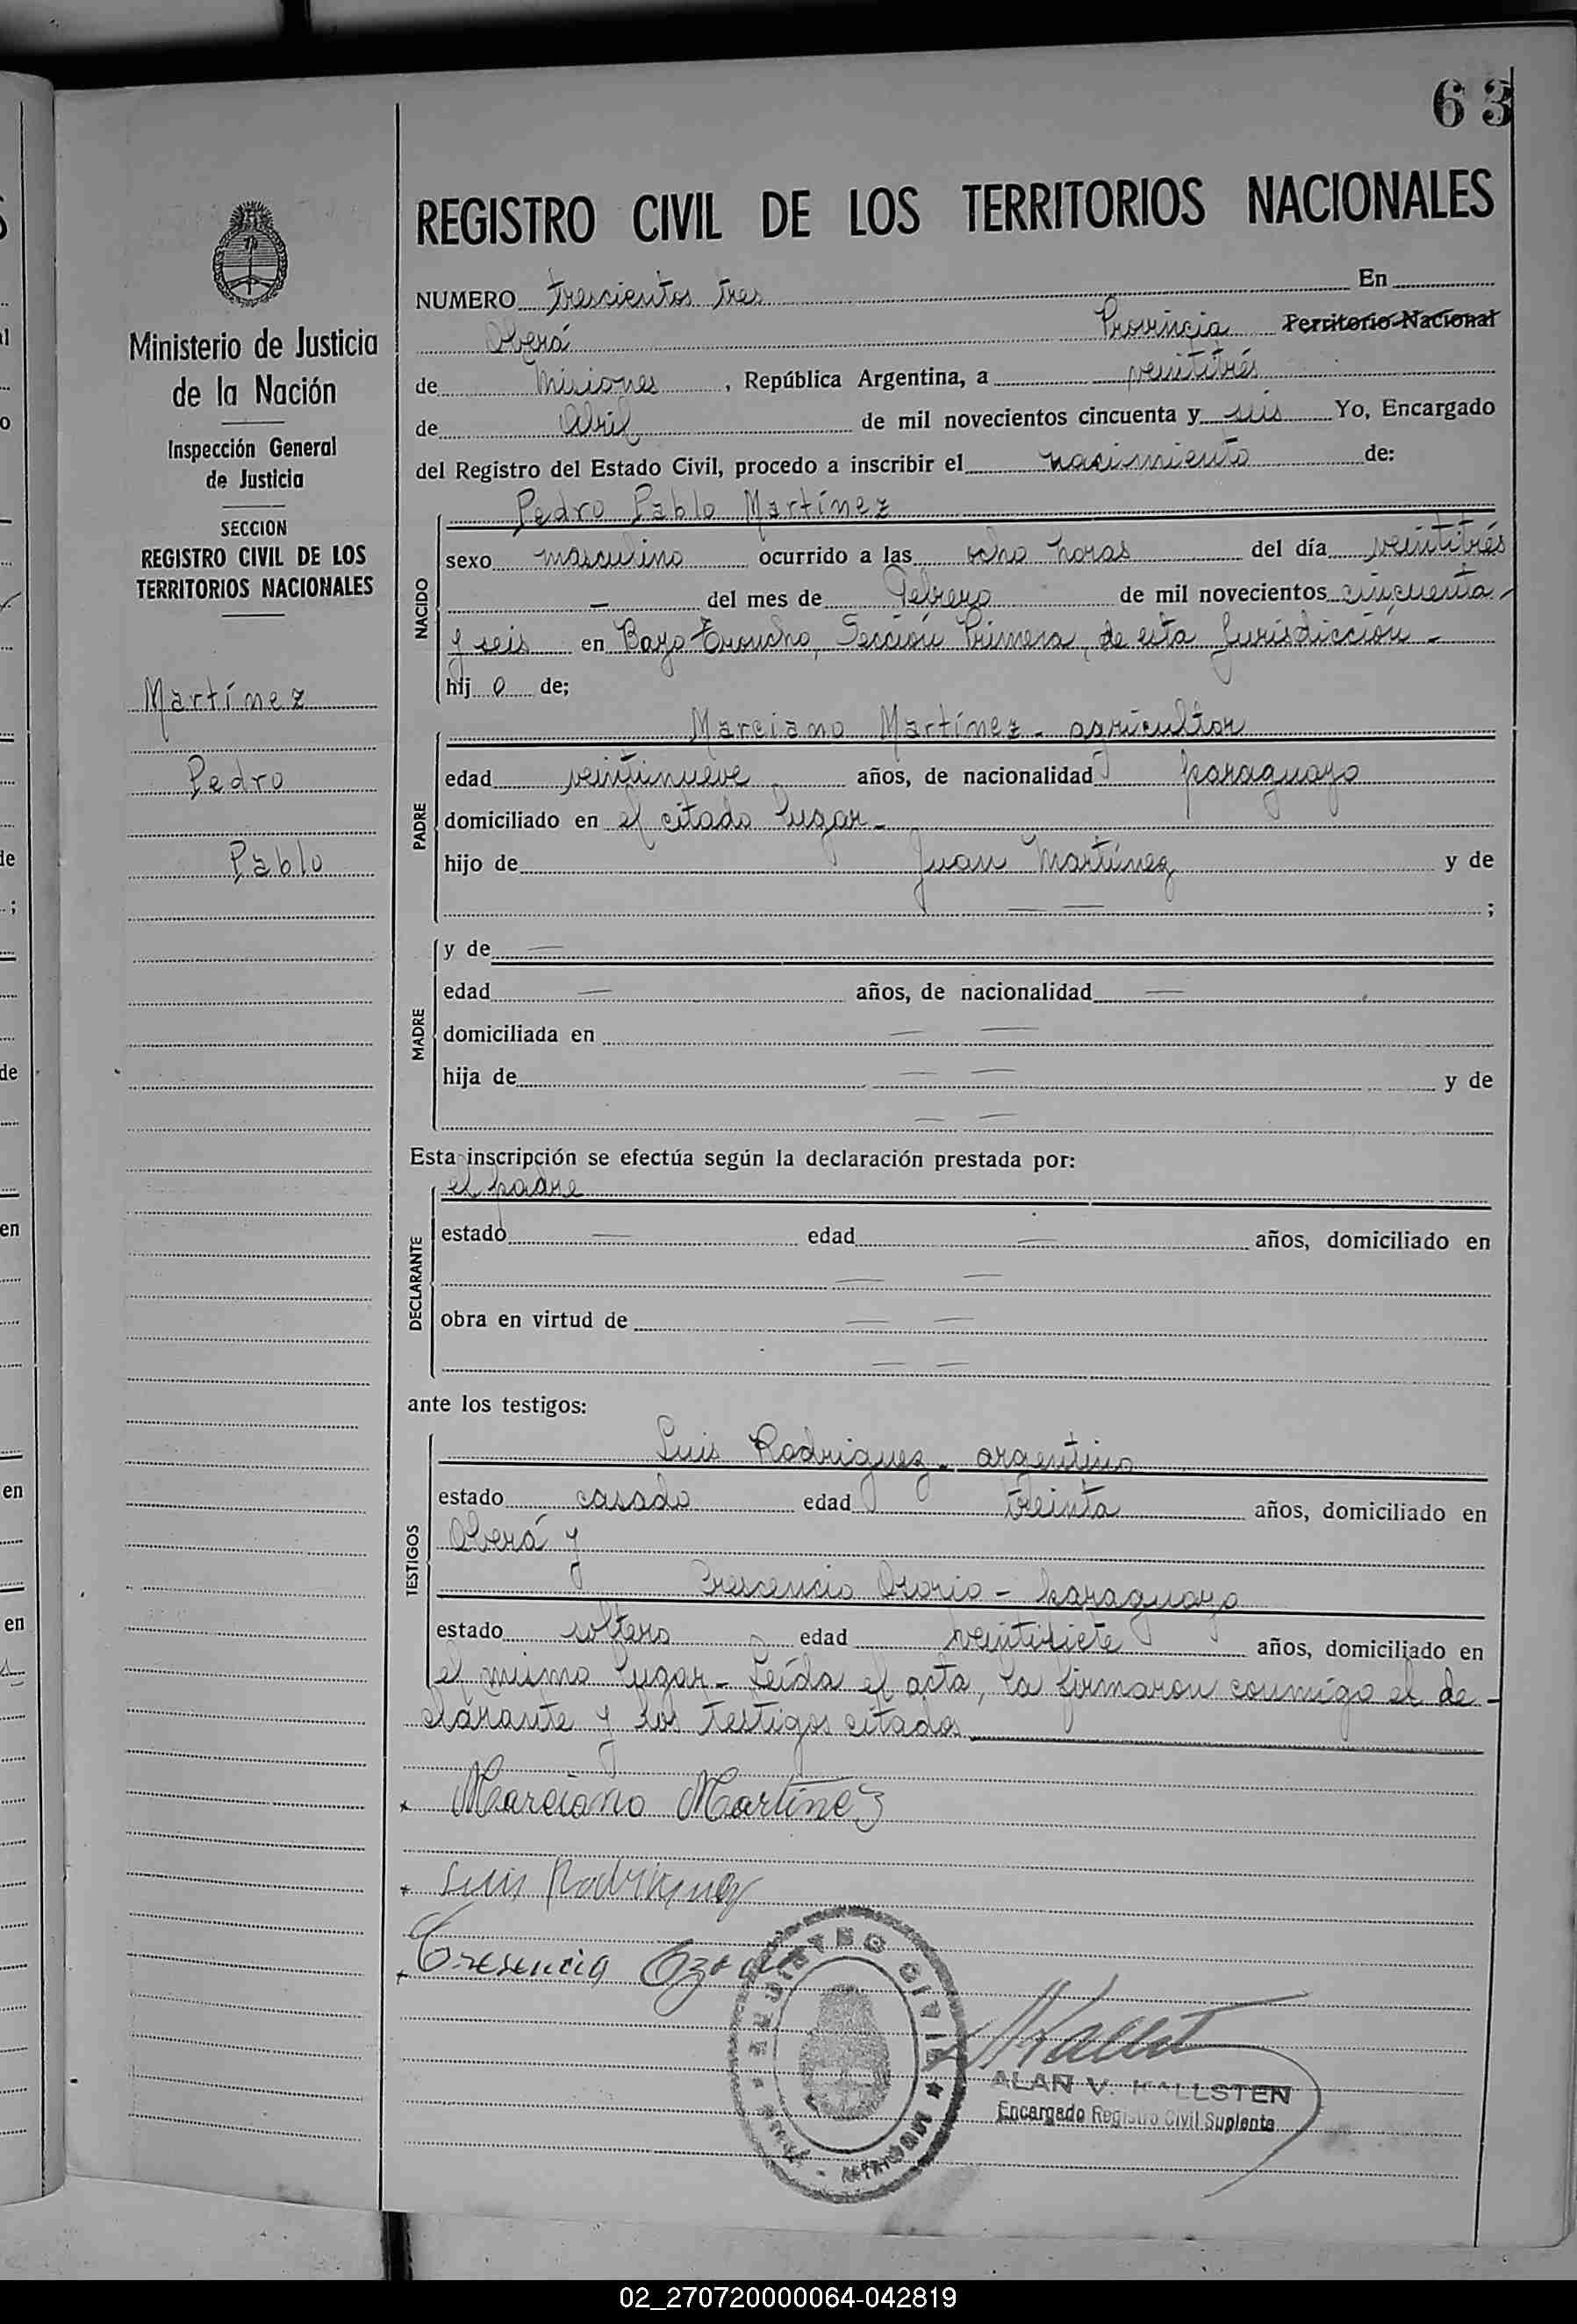 63
REGISTRO CIVIL DE LOS TERRITORIOS NACIONALES
NUMERO trescientos tres En
Oberá Provincia Territorio Nacional
de Misiones, República Argentina, a veintitrés
de Abril de mil novecientos cincuenta y seis Yo, Encargado
del Registro del Estado Civil, procedo a inscribir el nacimiento de:
Ministerio de Justicia
de la Nación
Inspección General
de Justicia
SECCION
REGISTRO CIVIL DE LOS
TERRITORIOS NACIONALES
Martínez
Pedro
Pablo
NACIDO
Pedro Pablo Martínez
sexo masculino ocurrido a las ocho horas del día veintitrés
— del mes de Febrero de mil novecientos cincuenta
y seis en Bayo Troncho, Sección Primera, de esta Jurisdicción —
hij o de;
PADRE
Marciano Martínez - agricultor
edad veintinueve años, de nacionalidad paraguayo
domiciliado en el citado lugar -
hijo de Juan Martínez y de
— — ;
MADRE
y de —
edad — años, de nacionalidad —
domiciliada en — —
hija de — — y de
— —
Esta inscripción se efectúa según la declaración prestada por:
DECLARANTE
el padre
estado — edad — años, domiciliado en
— —
obra en virtud de — —
— —
ante los testigos:
TESTIGOS
Luis Rodriguez - argentino
estado casado edad treinta años, domiciliado en
Oberá y
Crescencio Osorio - paraguayo
estado soltero edad veintisiete años, domiciliado en
el mismo lugar - Leída el acta, la firmaron conmigo el de-
clarante y los testigos citados
Marciano Martinez
Luis Rodriguez
Cresencio
REGISTRO CIVIL
ALAN V. HALLSTEN
Encargado Registro Civil Suplente
02_270720000064-042819